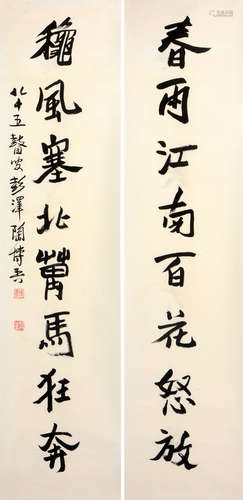 春雨江南百花怒放
龝風塞北萬馬狂奔
八十五瞽叟彭澤陶博吾